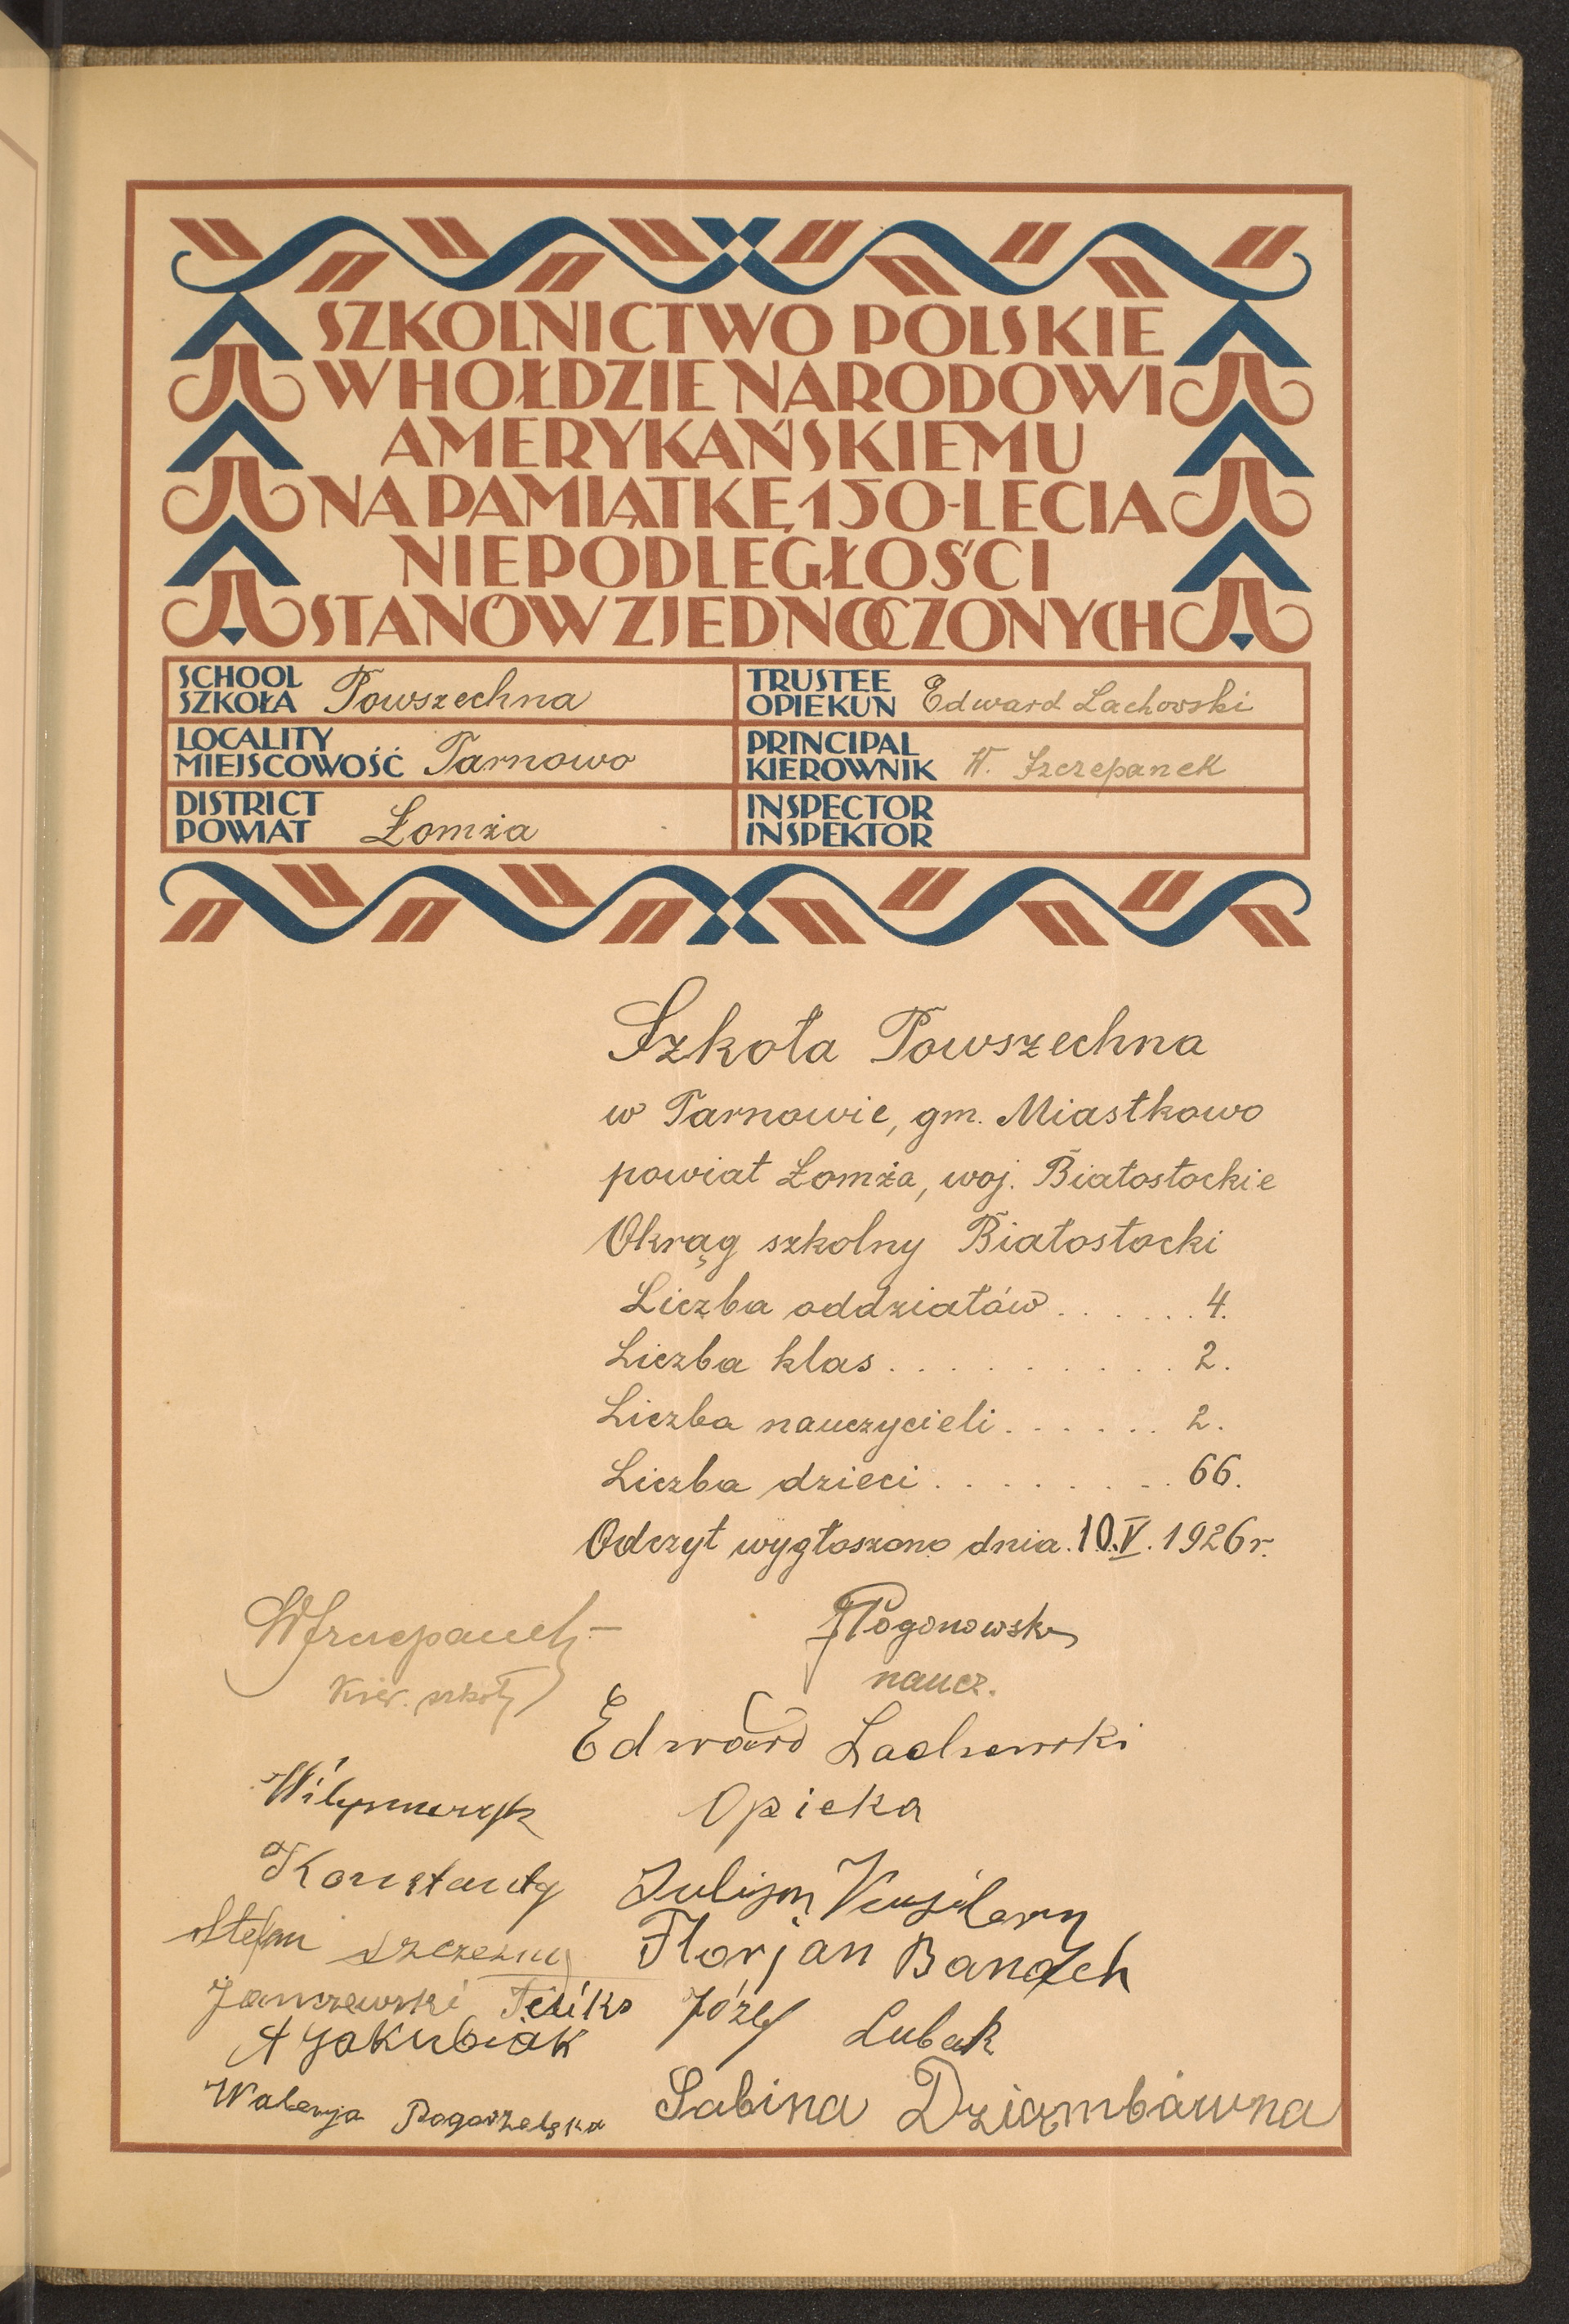 SZKOLNICTWO POLSKIE
W HOŁDZIE NARODOWI
AMERYKAŃSKIEMU
NA PAMIĄTKĘ 150-LECIA
NIEPODLEGŁOŚCI
STANÓW ZJEDNOCZONYCH
SCHOOL
SZKOŁA Powszechna
TRUSTEE
OPIEKUN Edward Lachowski
LOCALITY
MIEJSCOWOŚĆ Tarnowo
PRINCIPAL
KIEROWNIK W. Szczepanek
DISTRICT
POWIAT Łomża
INSPECTOR
INSPEKTOR
Szkoła Powszechna
w Tarnowie, gm. Miastkowo
powiat Łomża, woj. Białostockie
Okrąg szkolny Białostocki
Liczba oddziałów . . . . . . 4.
Liczba klas . . . . . . . . . . 2.
Liczba nauczycieli . . . . . . 2.
Liczba dzieci . . . . . . . . . 66.
Odczyt wygłoszono dnia 10.V. 1926 r.
WSzczepanek
Kier. szkoły
Pogonowski
naucz.
Edward Lachowski
Opieka
Konstanty
Juljan
Stefan Szczęsny
Florjan Banach
Janczewski Feliks
Józef Lubak
A Jakubiak
Walerja Pogorzelska
Sabina Dziąmbówna